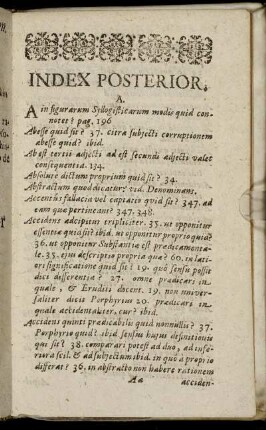 INDEX POSTERIOR.
A.
A in figurarum Syllogisticarum modis quid con-
notet? pag. 196
Abesse quid sit? 37. citra subjecti corruptionem
abesse quid? ibid.
Ab est tertii adjecti ad est secundi adjecti valet
consequentia. 134.
Absolute dictum proprium quid sit? 34.
Abstractum quod dicatur? vid. Denominans.
Accentus fallacia vel captatio quid sit? 347. ad
eam quæ pertineant? 347. 348.
Accidens accipitur tripliciter. 35. ut opponitur
essentiæ quid sit? ibid. ut opponitur proprio quid?
36. ut opponitur Substantiæ est prædicamenta-
le. 35. ejus descriptio propria quæ? 60. in lati-
ori significatione quid sit? 19. quo sensu possit
dici differentia? 27. omne prædicari in
quale, & Eruditi docent. 19. non univer-
saliter dicis Porphyrius 20. prædicari in
quale accidentaliter, cur? ibid.
Accidens quinti prædicabilis quid nonnullis? 37.
Porphyrio quid? ibid. sensus hujus definitionis
qui sit? 38. comparari potest ad duo, ad infe-
riora scil. & ad subjectum ibid. in quo a proprio
differat? 36. in abstracto non habere rationem
Aa
acciden-